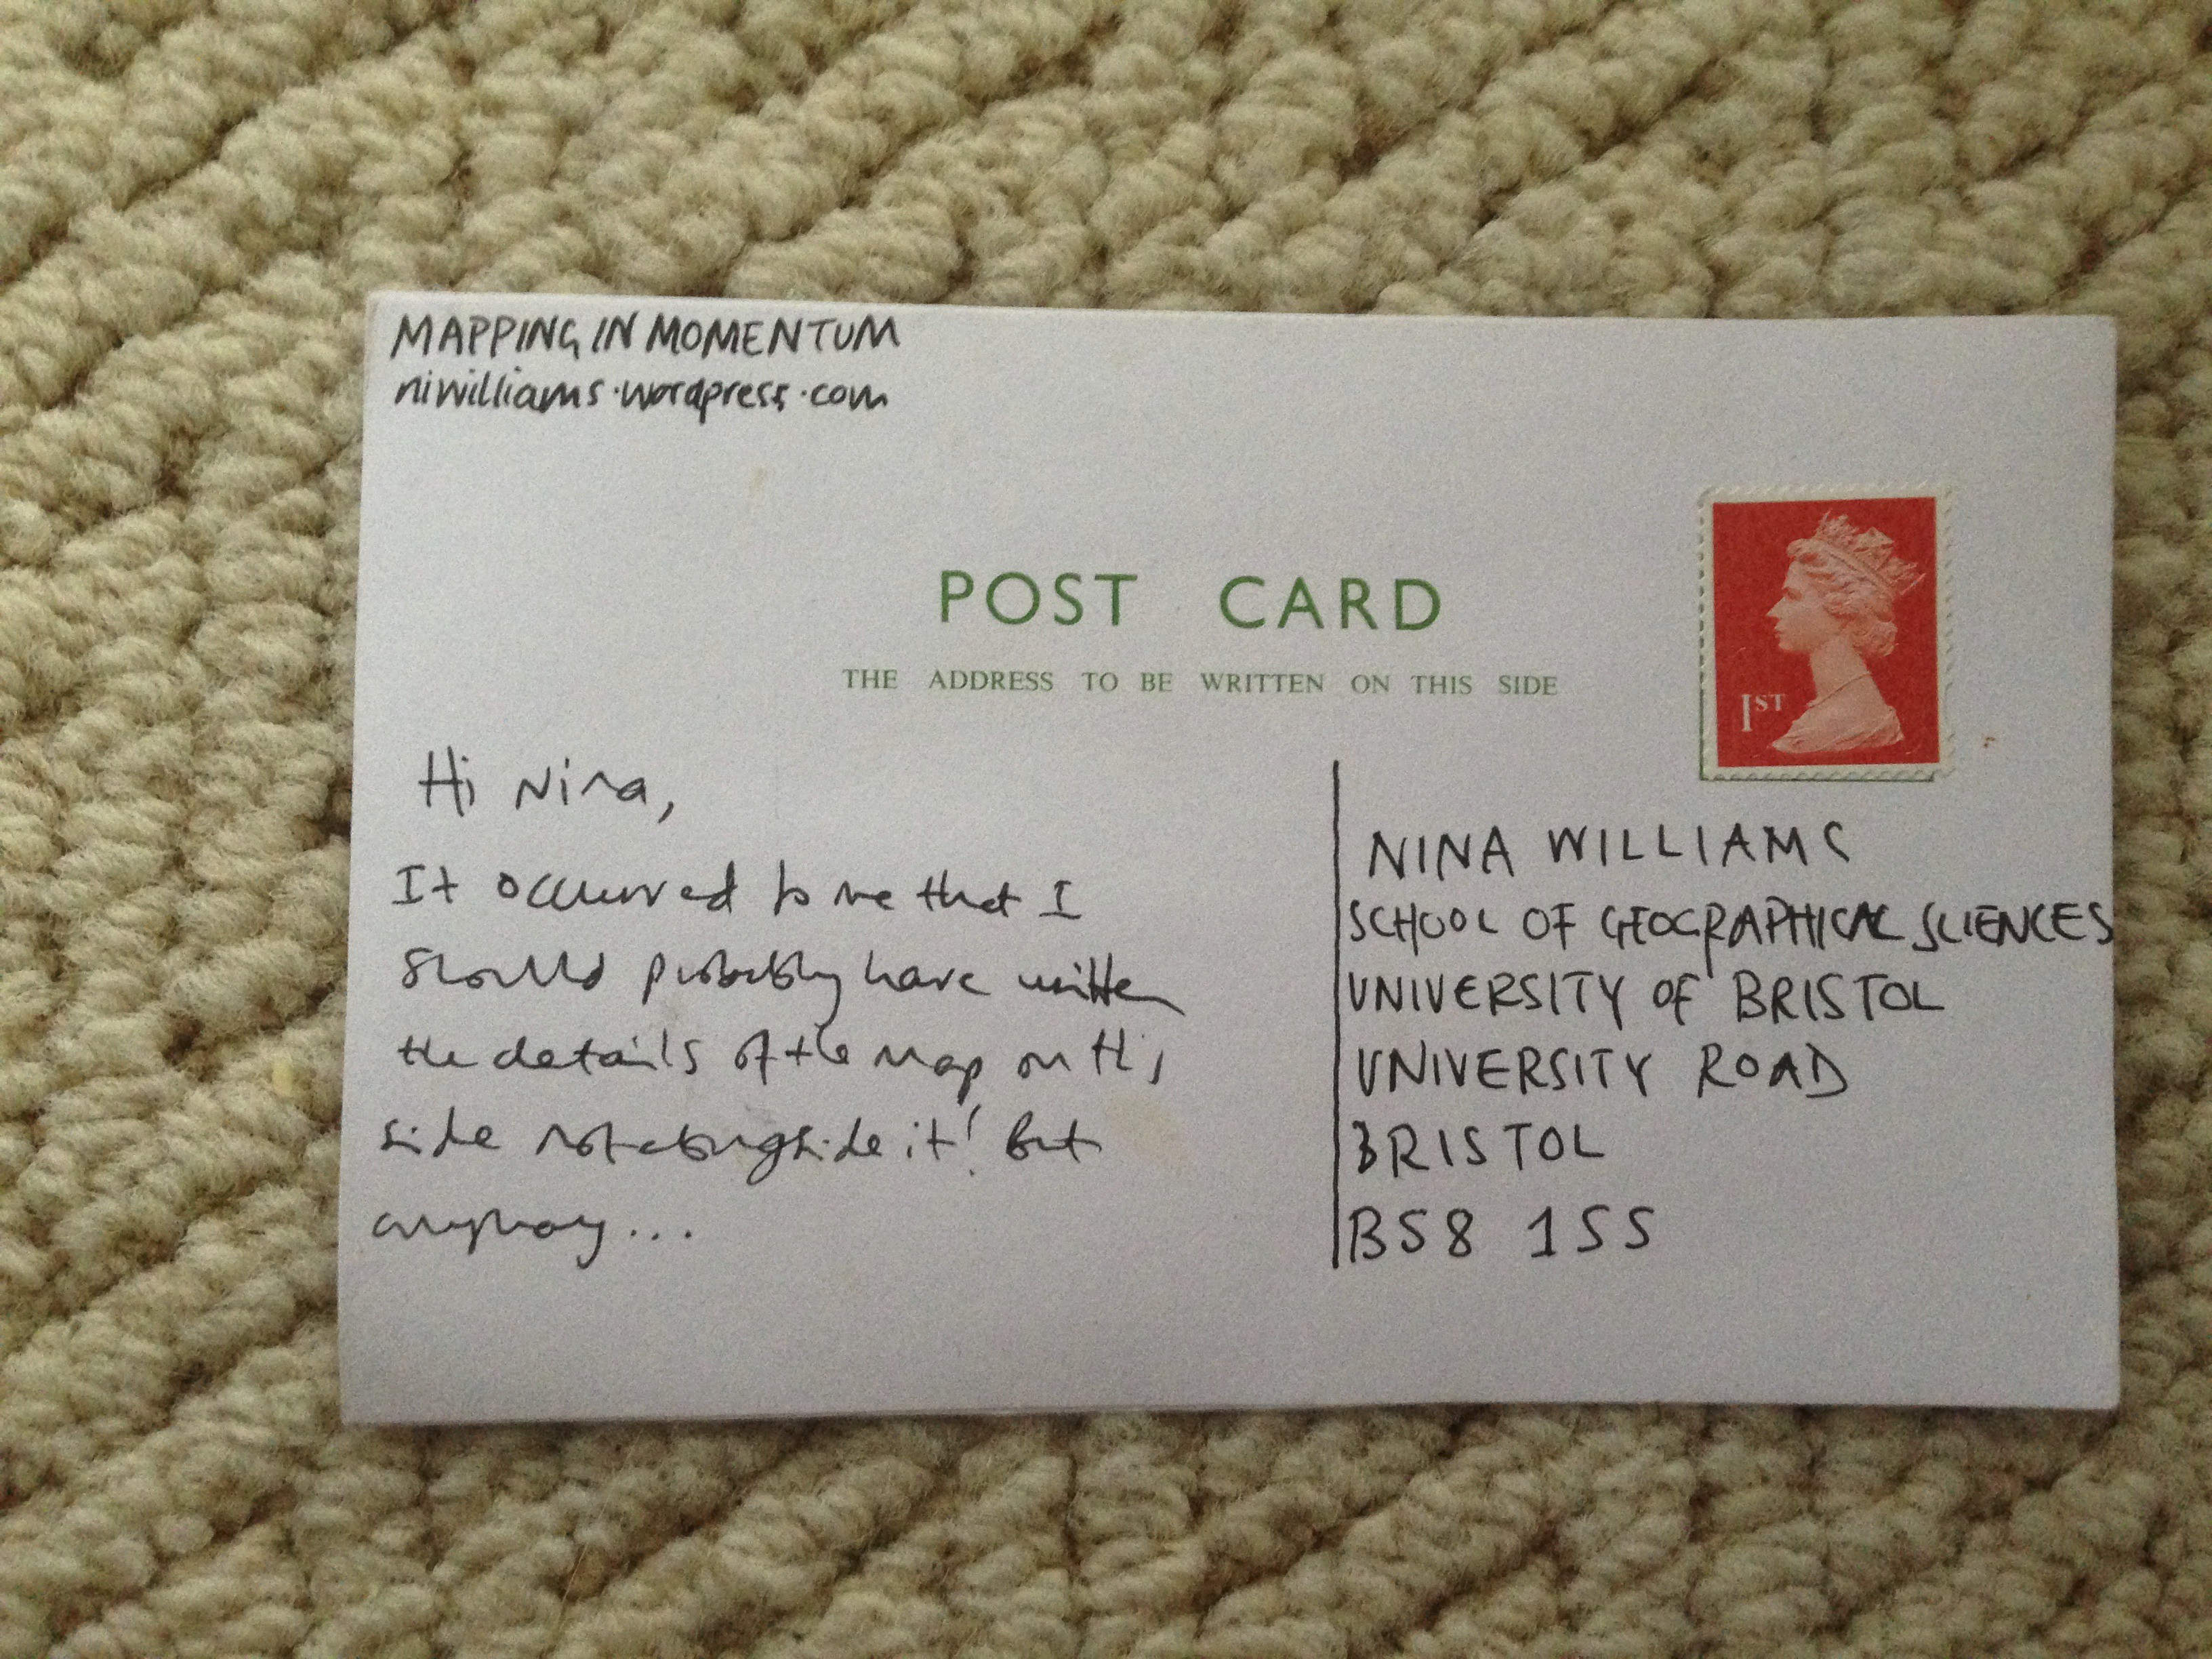 MAPPING IN MOMENTUM
niwilliams.wordpress.com
POST CARD
THE ADDRESS TO BE WRITTEN ON THIS SIDE
1ST
Hi Nina,
It occurred to me that I
should probably have written
the details of the map on this
side not alongside it! But
anyway...
NINA WILLIAMS
SCHOOL OF GEOGRAPHICAL SCIENCES
UNIVERSITY OF BRISTOL
UNIVERSITY ROAD
BRISTOL
BS8 1SS